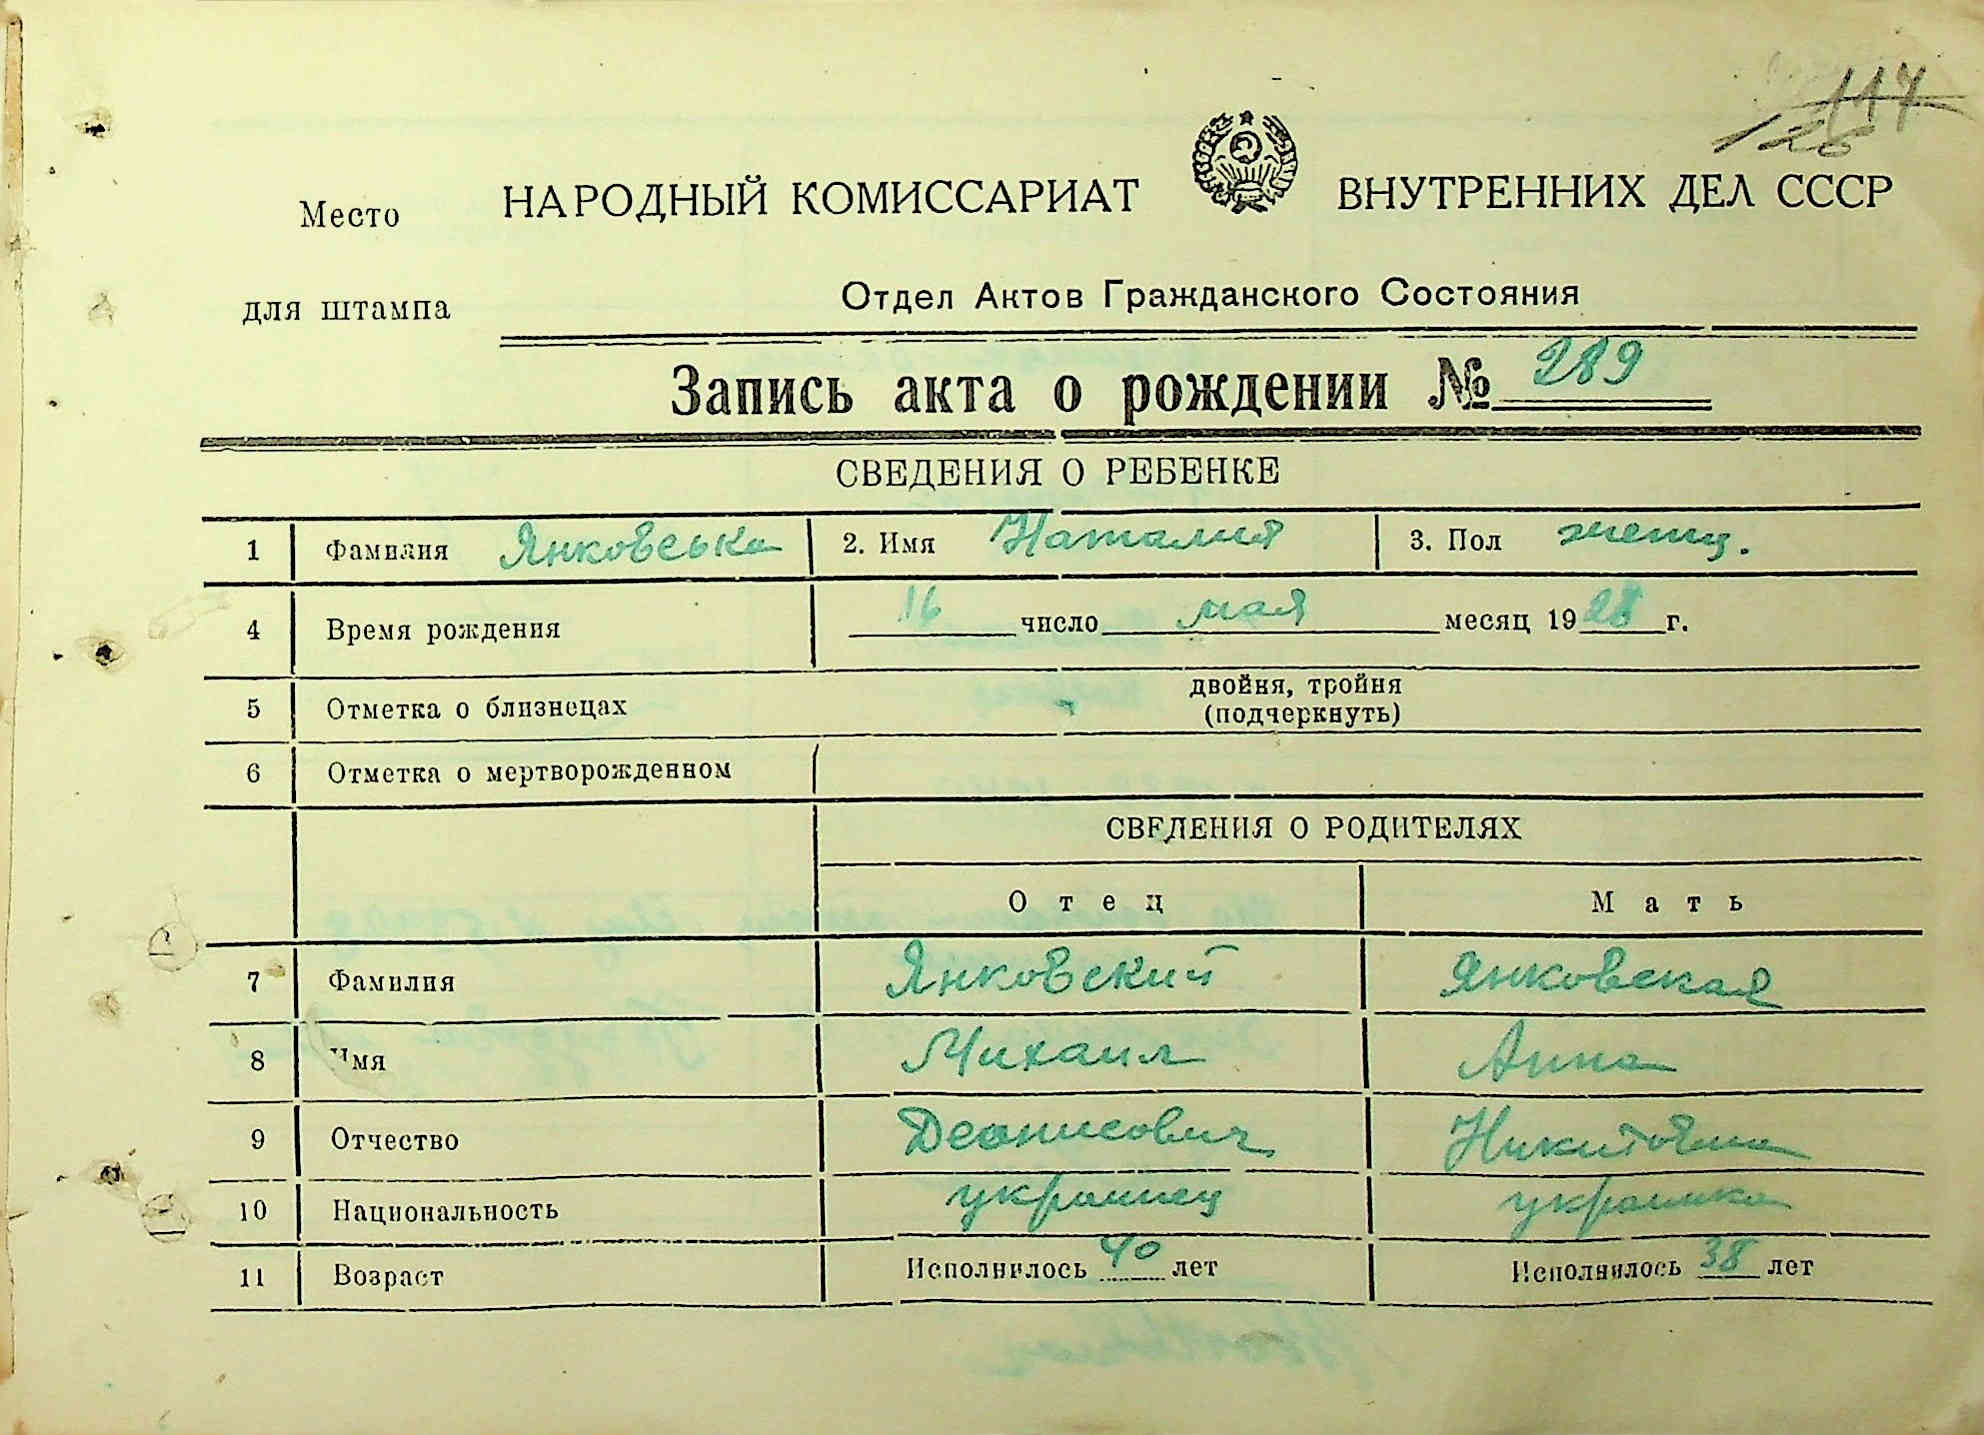 114
126
Место
для штампа
НАРОДНЫЙ КОМИССАРИАТ ВНУТРЕННИХ ДЕЛ СССР
Отдел Актов Гражданского Состояния
Запись акта о рождении № 289
СВЕДЕНИЯ О РЕБЕНКЕ
1 Фамилия Янковська 2. Имя Наталия 3. Пол женщ.
4 Время рождения 16 число мая месяц 1928 г.
5 Отметка о близнецах двойня, тройня
(подчеркнуть)
6 Отметка о мертворожденном
СВЕДЕНИЯ О РОДИТЕЛЯХ
Отец Мать
7 Фамилия Янковский Янковская
8 Имя Михаил Анна
9 Отчество Деонисович Никитовна
10 Национальность украинец украинка
11 Возраст Исполнилось 40 лет Исполнилось 38 лет